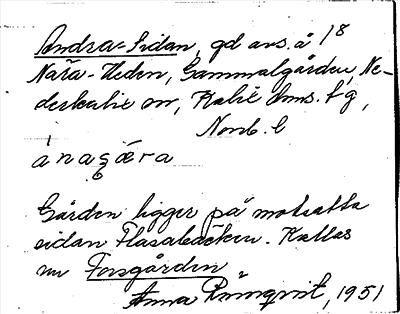 Andra-Sidan, gd avs. å 18
Nära-Heden, Gammalgården, Ne-
derkalix sn, Kalix tg,
Norrb. l
Gården ligger på motsatta
sidan Flasabäcken. Kallas
nu Forsgården
Anna Rönnqvist, 1951